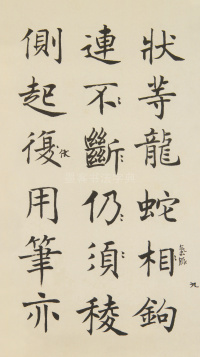 狀等龍蛇相鉤
連不斷仍須稜
側起復用筆亦